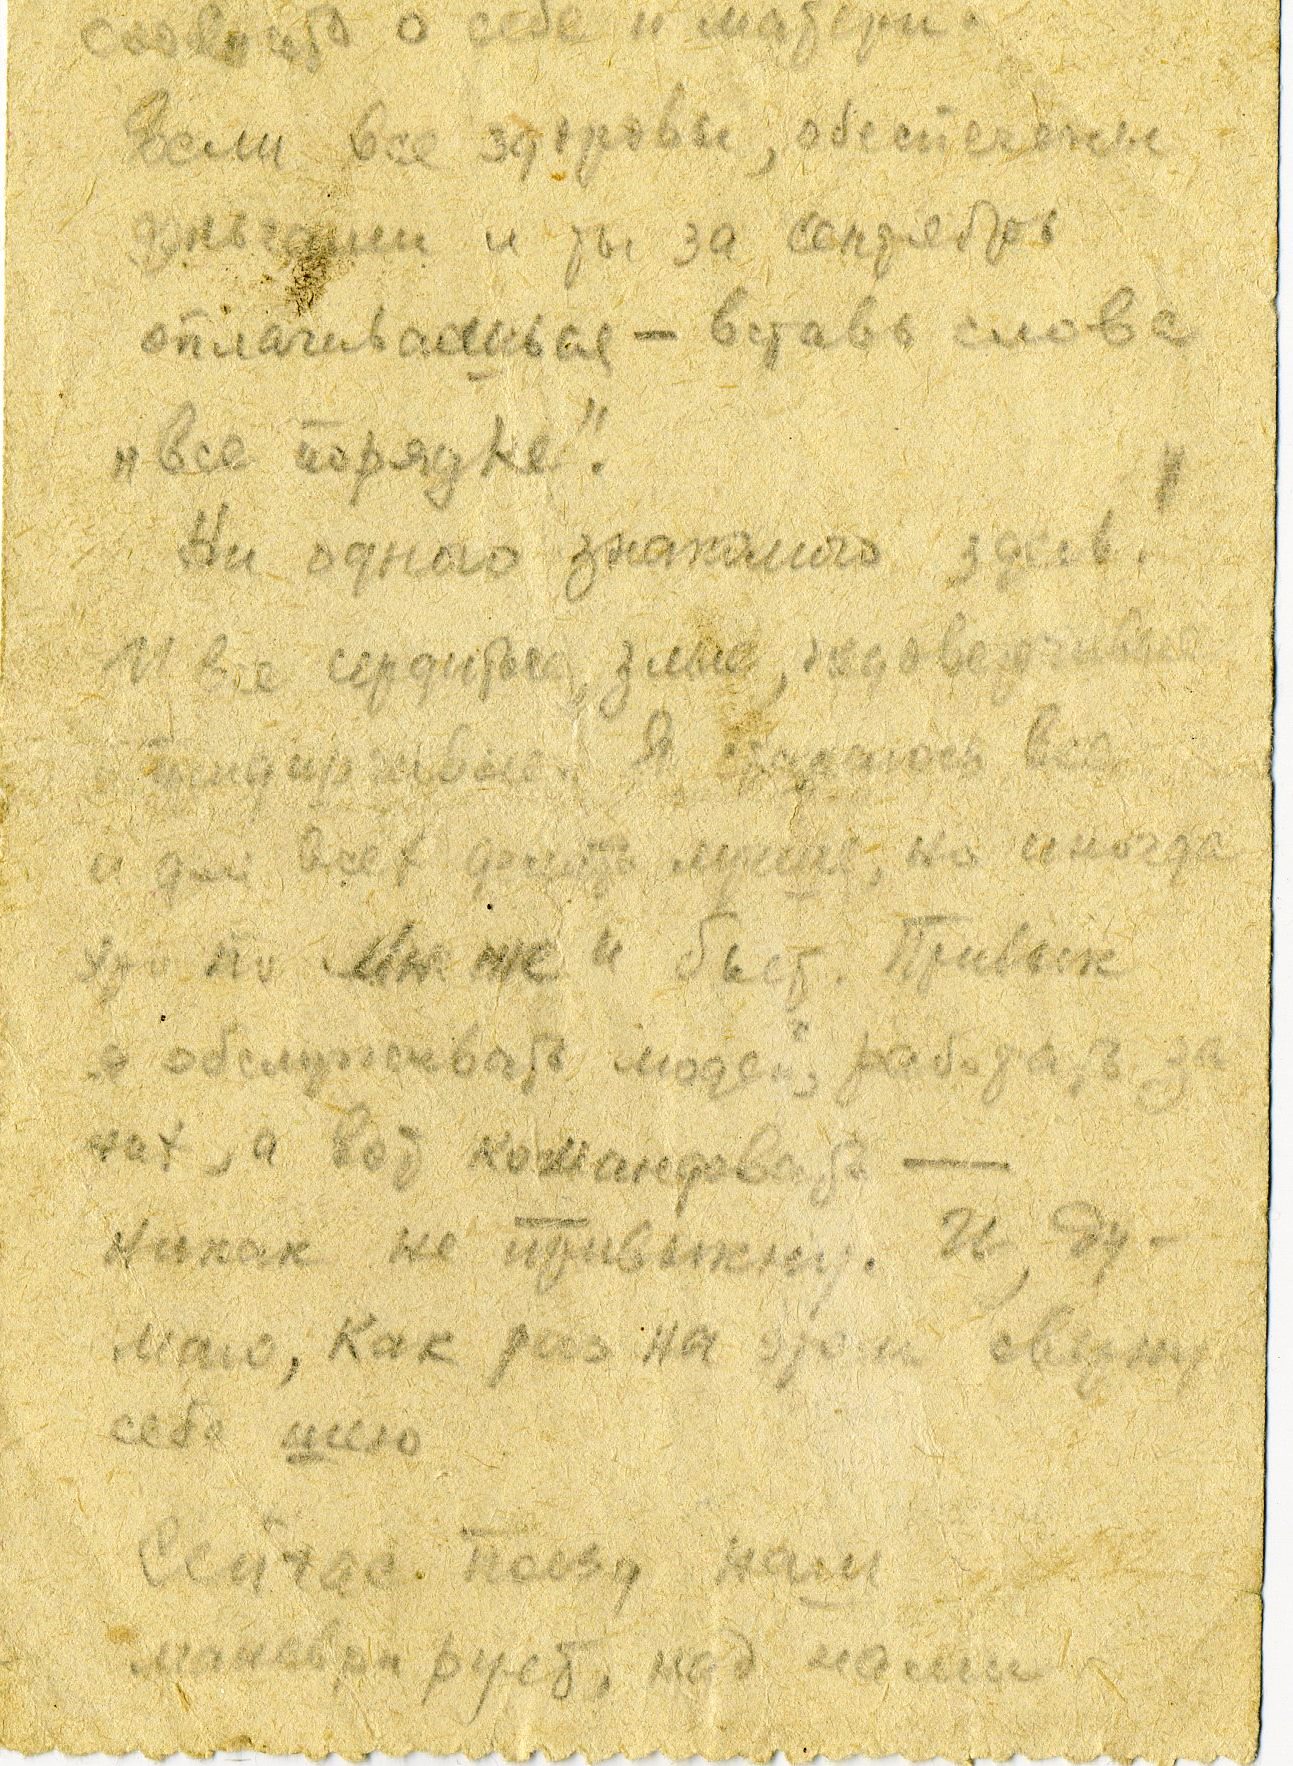 сообщить о себе и матери.
Если все здоровы, обеспечены
деньгами и ты за сентябрь
отплачиваешься — вставь слова
„все порядке".
Ни одного знакомого здесь.
И все сердитые, злые, недоверчивые
Я стараюсь все
и для всех делать лучше, но иногда
что по мне же и бьет. Привык
я обслуживать людей, работать за
них, а вот командовать —
никак не привыкну. И, ду-
маю, как раз на этом сверну
себе шею
Сейчас поезд наш
маневрирует, над нами